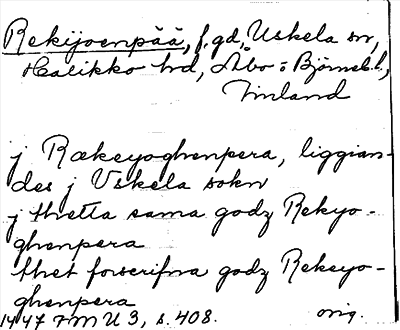 Rekijoenpää, f. gd, Uskela sn,
Halikko hd, Åbo o Björneb. l.,
Finland
j Rækeyoghenpera, liggian-
des j Vskela sokn
j thetta sama godz Rekyo-
ghenpera
thet forscrifna godz Rekeyo-
ghenpera
1447 FMU 3, s. 408. orig.